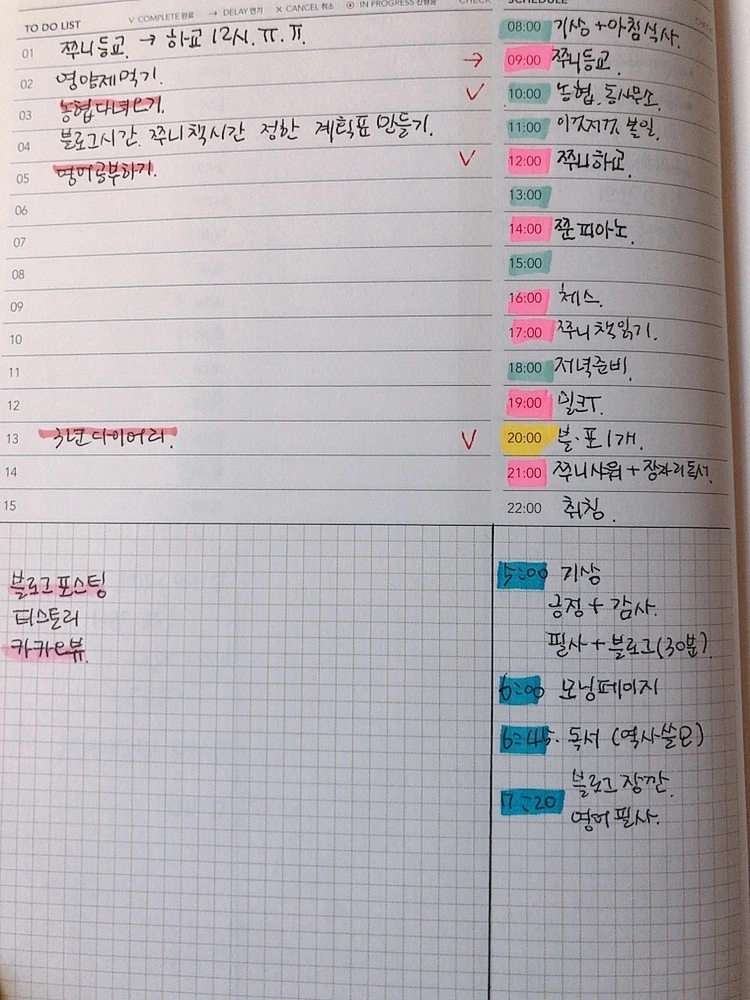 TO DO LIST
V COMPLETE 완료 → DELAY 연기 X CANCEL 취소 ⊙ IN PROGRESS 진행중
CHECK
01 쭈니등교. → 하교 12시. ㅠ.ㅠ.
02 영양제먹기. →
03 농협다녀오기. V
04 블로그시간. 쭈니책시간 정한 계획표 만들기.
05 영어공부하기. V
06
07
08
09
10
11
12
13 3년다이어리. V
14
15
SCHEDULE
08:00 기상+아침식사.
09:00 쭈니등교.
10:00 농협. 동사무소.
11:00 이것저것 볼일.
12:00 쭈니하교.
13:00
14:00 쭌피아노.
15:00
16:00 체스.
17:00 쭈니책읽기.
18:00 저녁준비.
19:00 밀크T.
20:00 블.포1개.
21:00 쭈니샤워+잠자리독서.
22:00 취침.
블로그포스팅
티스토리
카카오뷰.
5:00 기상
긍정+감사.
필사+블로그(30분).
6:00 모닝페이지
6:45. 독서 (역사쓸모)
7:20 블로그 장깐.
영어필사.